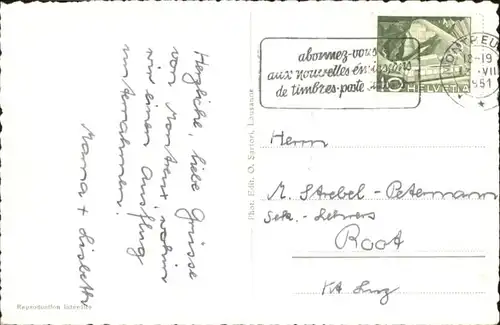 Herzliche, liebe Grüsse
von Montreux, wohin
wir einen Ausflug
unternahmen.
Mama + Lisbeth
Reproduction interdite
Phot. Edit. O. Sartori, Lausanne
abonnez-vous
aux nouvelles émissions
de timbres-poste
HELVETIA
MONTREUX
12-19
VII
1951
Herrn
M. Strebel-Petermann
Sek.-Lehrers
Root
Kt. Luz.